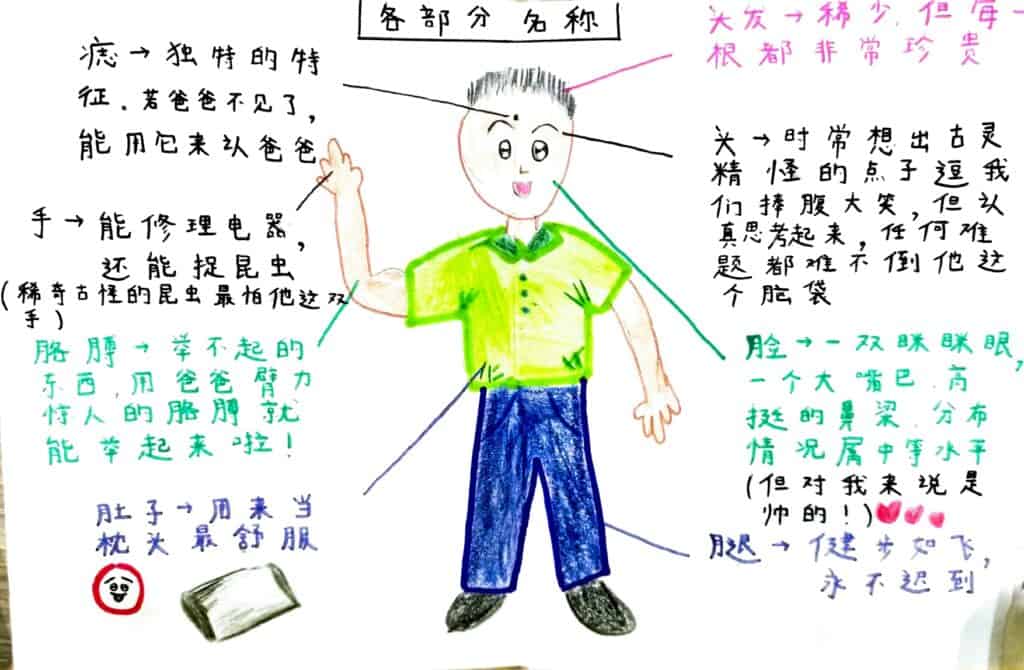 各部分名称
头发→稀少,但每一
根都非常珍贵
痣→独特的特
征。若爸爸不见了,
能用它来认爸爸
头→时常想出古灵
精怪的点子逗我
们捧腹大笑,但认
真思考起来,任何难
题都难不倒他这
个脑袋
手→能修理电器,
还能捉昆虫
(稀奇古怪的昆虫最怕他这双
手)
胳膊→举不起的
东西,用爸爸臂力
惊人的胳膊就
能举起来啦!
脸→一双眯眯眼,
一个大嘴巴,高
挺的鼻梁,分布
情况属中等水平
(但对我来说是
帅的!)
肚子→用来当
枕头最舒服
腿→健步如飞,
永不迟到